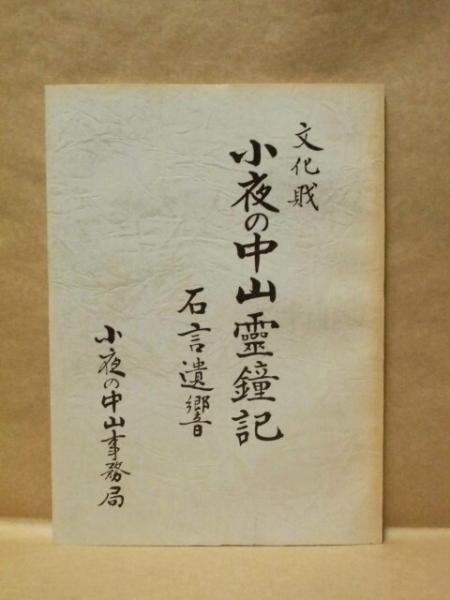 文化財
小夜の中山霊鐘記
石言遺響
小夜の中山事務局